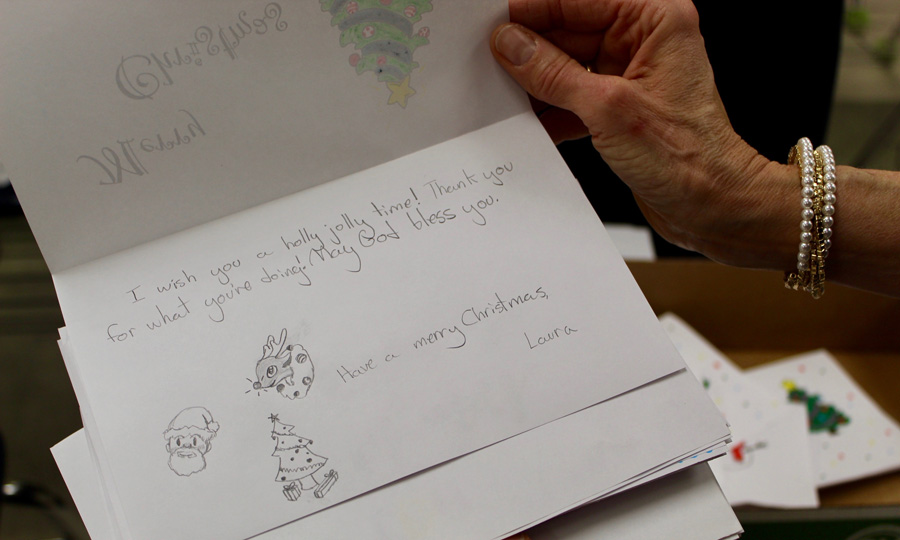 Christmas
Merry
I wish you a holly jolly time! Thank you
for what you're doing! May God bless you.
Have a merry Christmas,
Laura